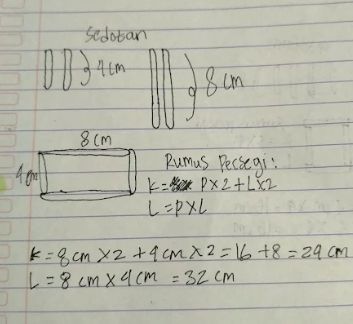 Sedotan
4 cm
8 cm
8 cm
4 cm
Rumus Persegi:
K= PX2+LX2
L=PXL
K=8cm X2 +4cm X2=16+8=24 cm
L=8 cm X 4cm =32 cm